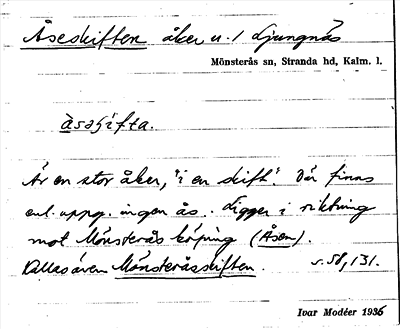 Åseskiften åker u. / Ljungnäs
Mönsterås sn, Stranda hd, Kalm. l.
åsʃifta.
Är en stor åker, "i en skift". Där finns
enl. uppg. ingen ås. Ligger i riktning
mot Mönsterås köping (Åsen).
Kallas även Mönsteråsskiften. s. 58, 131.
Ivar Modéer 1936